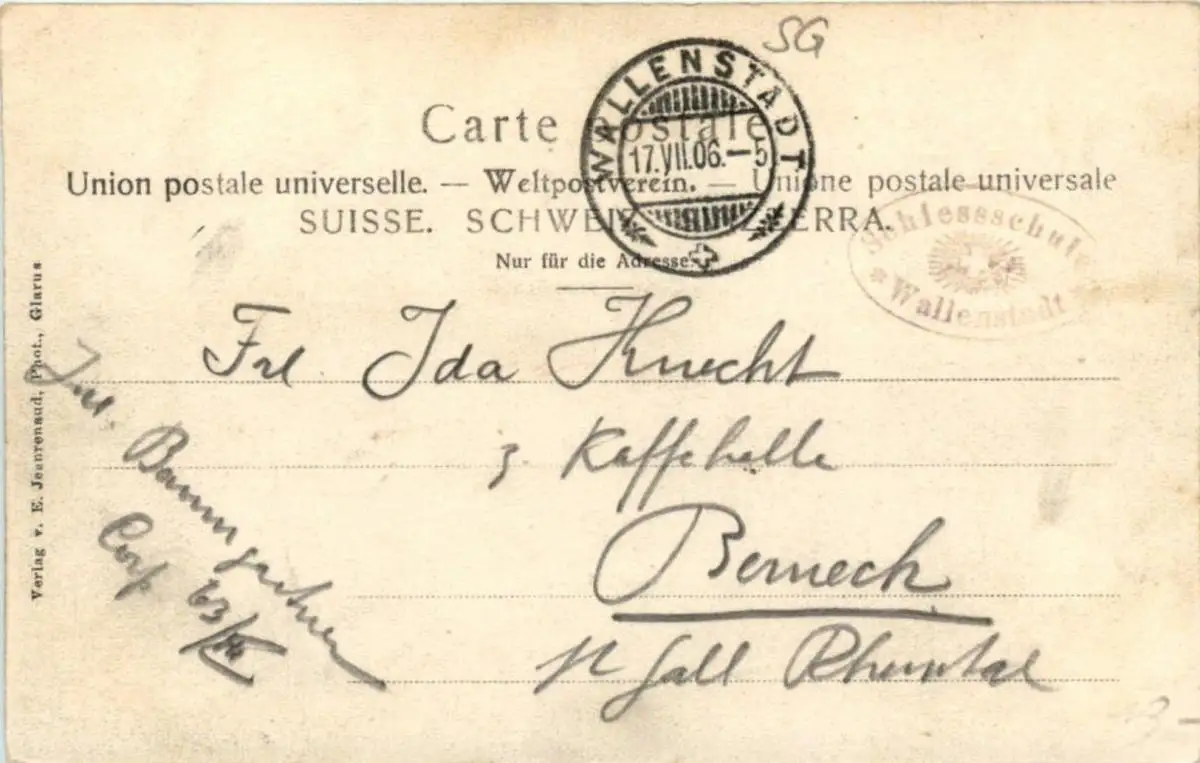 SG
WALLENSTADT
17.VII.06.–5
Carte postale
Union postale universelle. — Weltpostverein. — Unione postale universale
SUISSE. SCHWEIZ. SVIZZERRA.
Nur für die Adresse.
Schiessschule
Wallenstadt
Frl Ida Knecht
z. Kaffehalle
Berneck
St Gall Rheintal
Baumgartner
Corp 63/
Verlag v. E. Jeanrenaud, Phot., Glarus